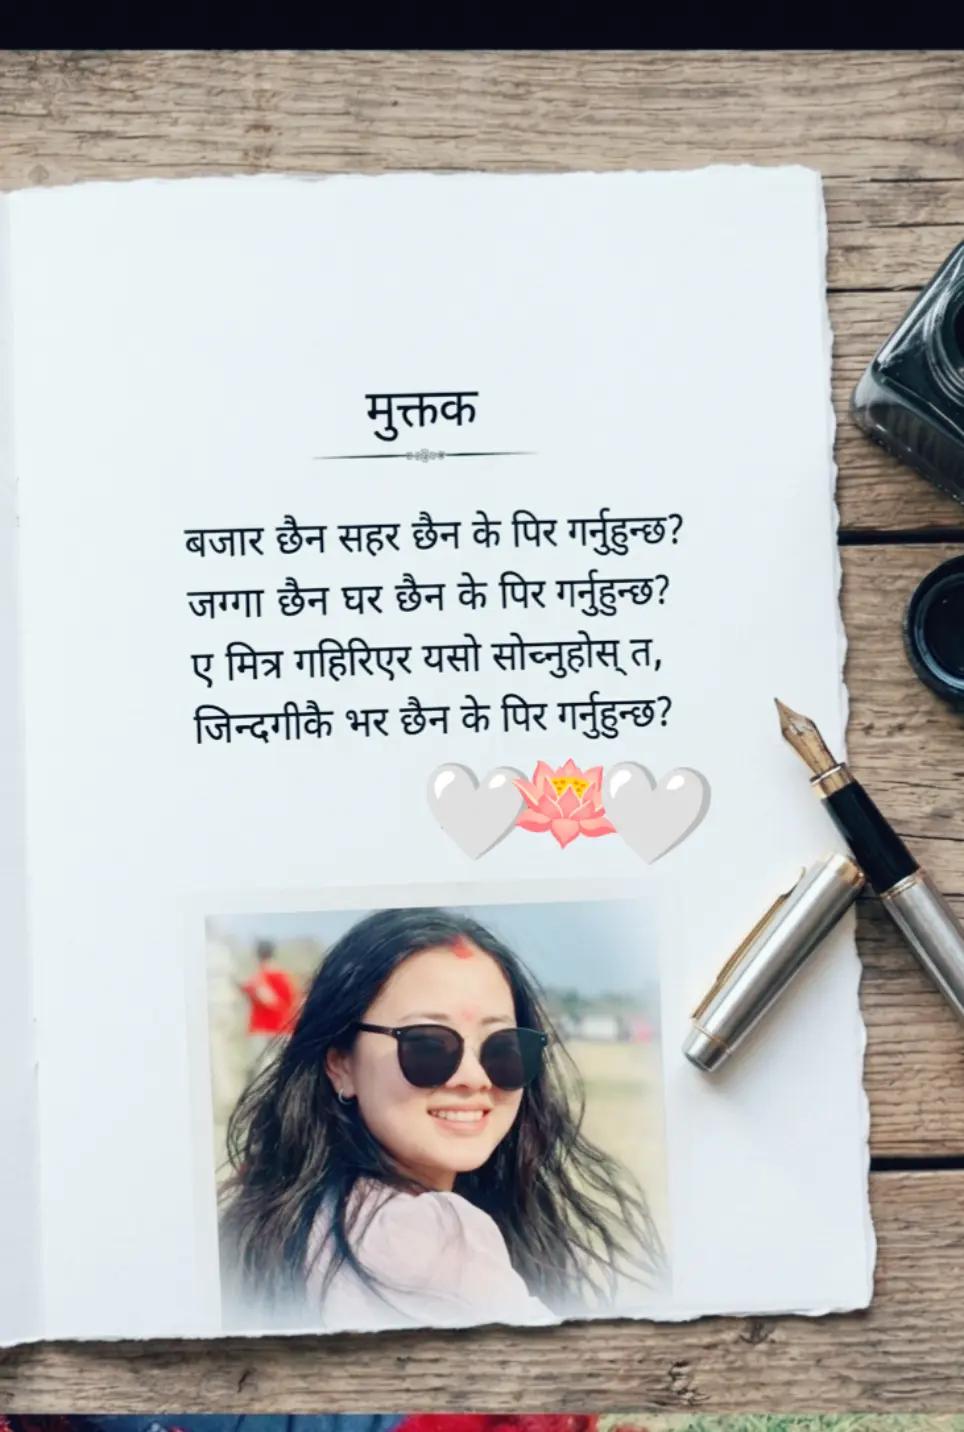 मुक्तक
बजार छैन सहर छैन के पिर गर्नुहुन्छ?
जग्गा छैन घर छैन के पिर गर्नुहुन्छ?
ए मित्र गहिरिएर यसो सोच्नुहोस् त,
जिन्दगीकै भर छैन के पिर गर्नुहुन्छ?